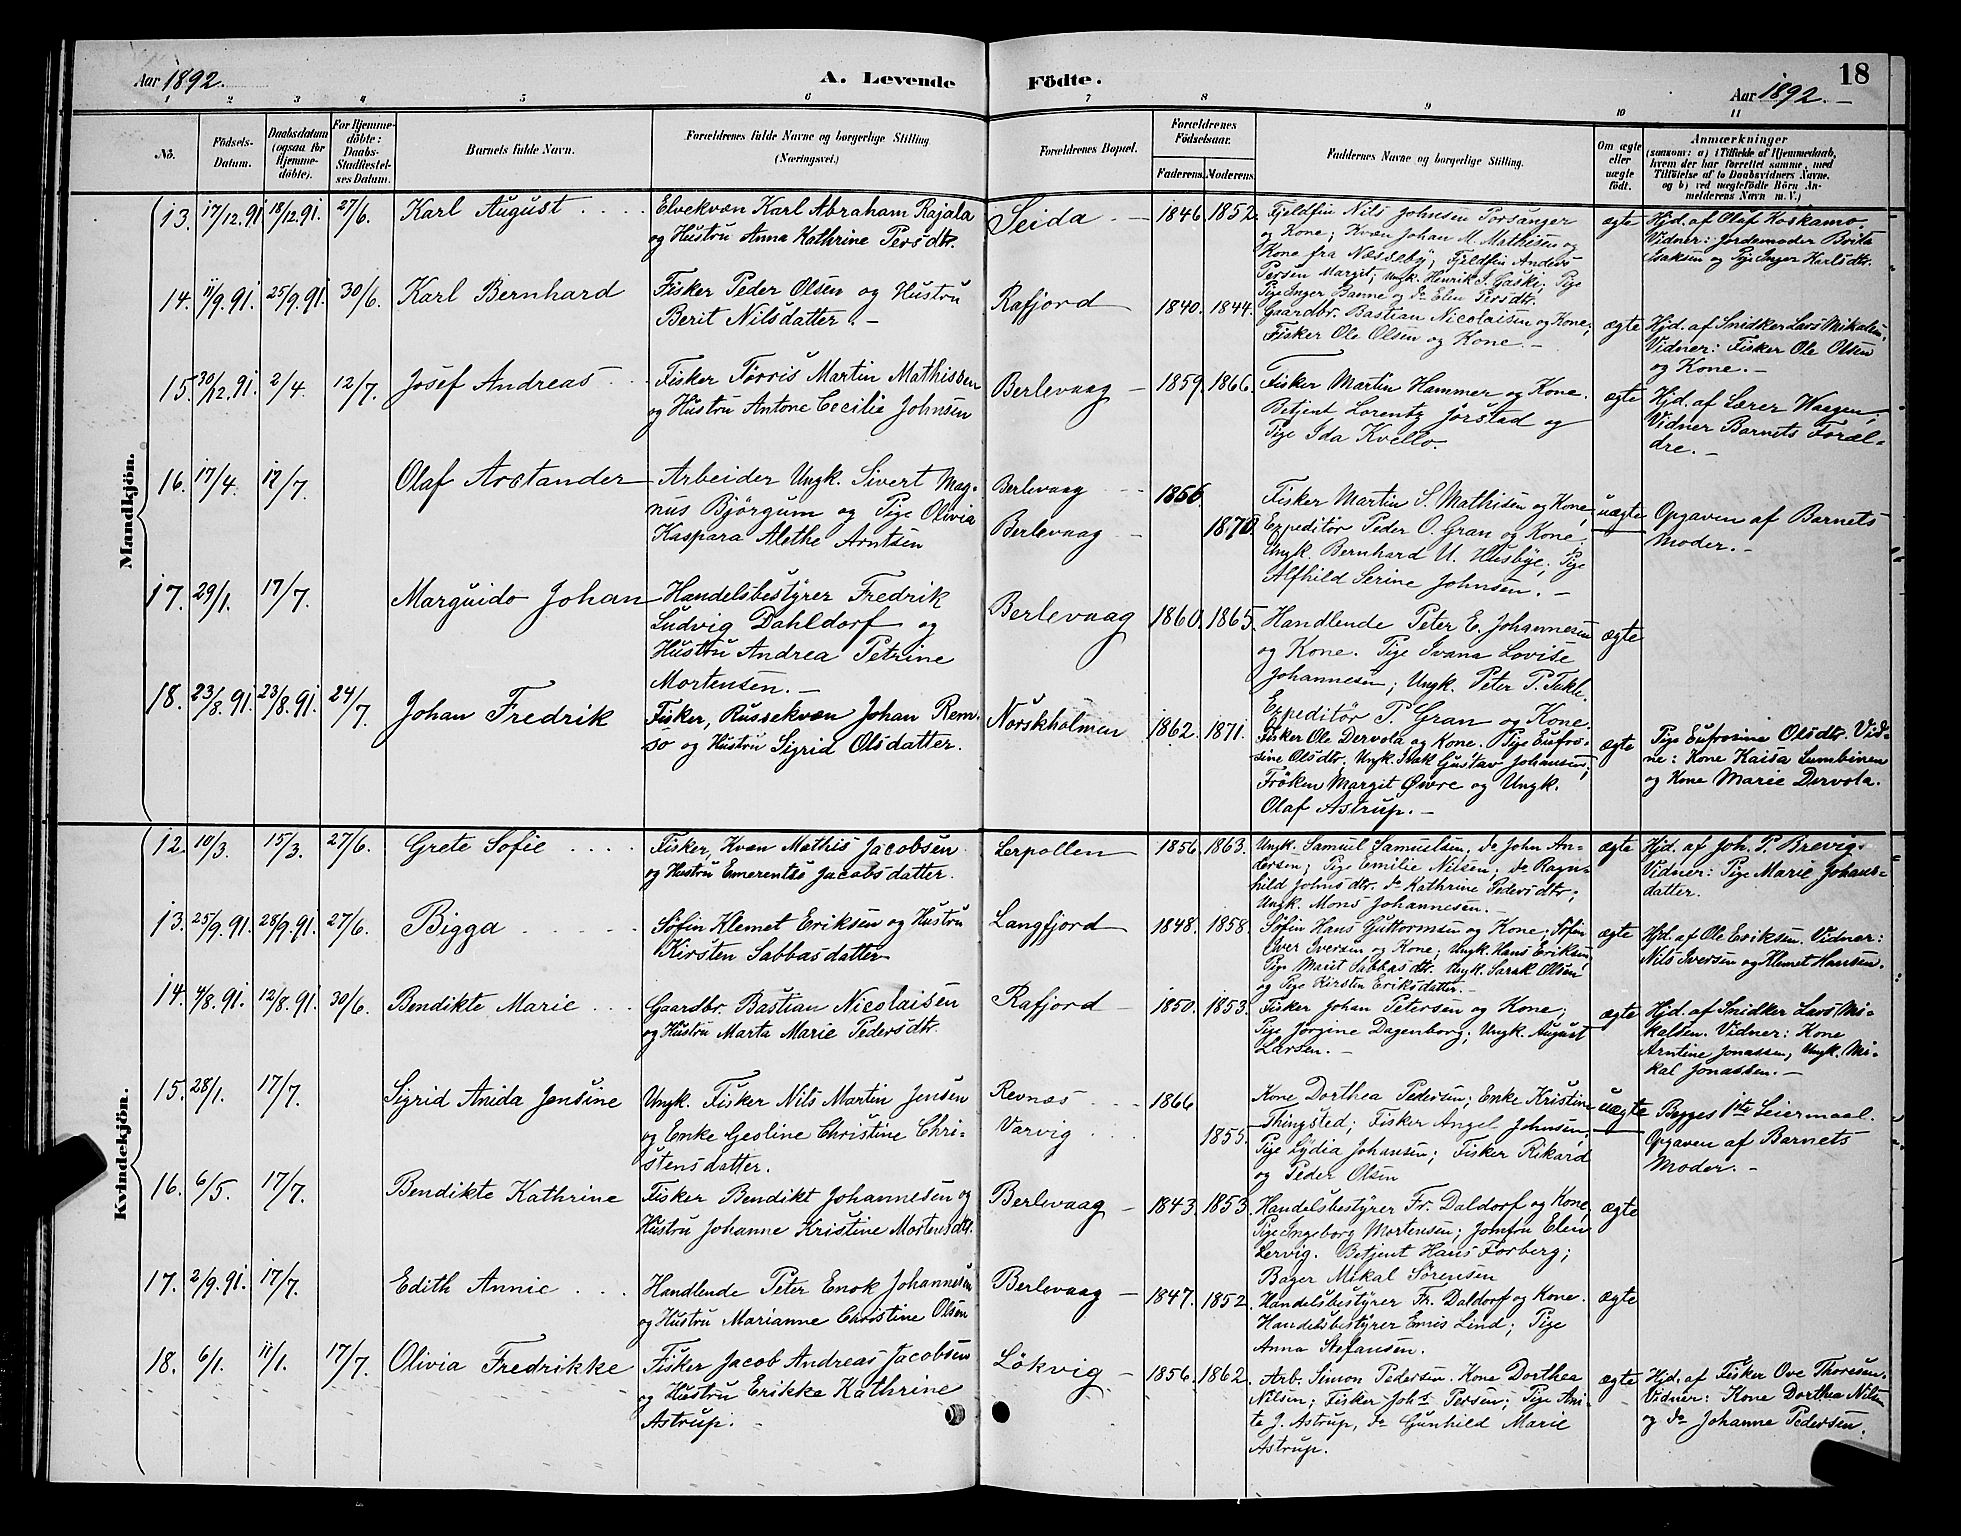 Aar 1892. A. Levende Födte. Aar 1892. 18
1 2 3 4 5 6 7 8 9 10 11
No. Födsels-Datum. Daabsdatum (ogsaa for Hjemme-döbte). For Hjemme-döbte: Daabs-Stadfæstel-ses Datum. Barnets fulde Navn. Forældrenes fulde Navne og borgerlige Stilling (Næringsvei.) Forældrenes Bopæl. Forældrenes Födselsaar. Faderens. Moderens. Faddernes Navne og borgerlige Stilling. Om ægte eller uægte födt. Anmærkninger (saasom: a) i Tilfælde af Hjemmedaab, hvem der har forrettet samme, med Tilföielse af to Daabsvidners Navne, og b) ved uægtefödte Börn Anmelderens Navn m. V.)
Mandkjön.
13. 17/12.91. 18/12.91. 27/6. Karl August Elvekvæn Karl Abraham Rajala
og Hustru Anna Kathrine Persdtr.
Seida 1846 1852. Fjeldfin Nils Johnsen Porsanger
og Kone; Kvæn Johan M. Mathisen og
Kone fra Næsseby; Fjeldfin Anders
Persen Margit; Ungk. Henrik I. Gaski; Pige
Pige Inger Banne og do Elen Persdtr.
ægte Hjd. af Olaf Koskamo.
Vidner: Jordemoder Brita
Isaksen og Pige Inger Karlsdtr.
14. 11/9.91. 25/9.91. 30/6. Karl Bernhard Fisker Peder Olsen og Hustru
Berit Nilsdatter.
Rafjord 1840. 1844. Gaardbr. Bastian Nicolaisen og Kone;
Fisker Ole Olsen og Kone.
ægte Hjd. af Snidker Lars Mikalsen,
Vidner: Fisker Ole Olsen
og Kone.
15. 30/12.91. 2/4. 12/7. Josef Andreas Fisker Törris Martin Mathissen
og Hustru Antone Cecilie Johnsen
Berlevaag 1859. 1866. Fisker Martin Hammer og Kone.
Betjent Lorentz Jörstad og
Pige Ida Kvello.
ægte Hjd. af Lærer Waagen,
Vidner Barnets Foræl-
dre.
16. 17/4. 12/7. Olaf Arstander Arbeider Ungk. Sivert Mag-
nus Björgum og Pige Olivia
Kaspara Alethe Arntsen
Berlevaag 1856.
Berlevaag 1870.
Fisker Martin S. Mathisen og Kone,
Expeditör Peder O. Gran og Kone
Ungk. Bernhard U. Husbye; Pige
Alfhild Serine Johnsen.
uægte Opgaven af Barnets
Moder.
17. 29/1. 17/7. Marguido Johan Handelsbestyrer Fredrik
Ludvig Dahldorf og
Hustru Andrea Petrine
Mortensen.
Berlevaag 1860. 1865. Handlende Peter E. Johannesen
og Kone. Pige Svana Lovise
Johannesen; Ungk. Peter P. Tekle.
Expeditör P. Gran og Kone.
ægte
18. 23/8.91. 23/8.91. 24/7. Johan Fredrik Fisker, Russekvæn Johan Rem-
so og Hustru Sigrid Olsdatter.
Norskholmen 1862. 1871. Fisker Ole Dervola og Kone. Pige Eufro-
sine Olsdtr. Ungk. Isak Gustav Johansen;
Fröken Margit Övre og Ungk.
Olaf Astrup.
ægte Pige Eufrosine Olsdtr. Vid-
ne: Kone Kaisa Lumbinen
og Kone Marie Dervola.
Kvindekjön.
12. 10/3. 15/3. 27/6. Grete Sofie Fisker, Kvæn Mathis Jacobsen
og Hustru Emerentse Jacobsdatter.
Lerpollen 1856. 1863. Ungk. Samuel Samuelsen, do John An-
dersen; Pige Emilie Nilsen; do Ragn-
hild Johnsdtr. do Kathrine Pedersdtr;
Ungk. Mons Johannesen.
ægte Hjd. af Joh. P. Brevig.
Vidner: Pige Marie Johans-
datter.
13. 25/9.91. 28/9.91. 27/6. Bigga Söfin Klemet Eriksen og Hustru
Kirsten Sabbasdatter
Langfjord 1848. 1858. Söfin Hans Guttormsen og Kone; Söfin
Iver Iversen og Kone; Ungk. Hans Eriksen
Pige Marit Sabbasdtr. Ungk. Sarak Olsen
og Pige Kirsten Eriksdatter.
ægte Hjd. af Ole Eriksen. Vidner:
Nils Iversen og Klemet Hansen.
14. 4/8.91. 12/8.91. 30/6. Bendikte Marie Gaardbr. Bastian Nicolaisen
og Hustru Marta Marie Pedersdtr.
Rafjord 1850. 1853. Fisker Johan Petersen og Kone;
Pige Jörgine Dagenborg; Ungk. August
Larsen.
ægte Hjd. af Snidker Lars Mi-
kalsen. Vidner: Kone
Arntine Jonassen, Ungk. Mi-
kal Jonassen.
15. 28/1. 17/7. Sigrid Anida Jensine Ungk. Fisker Nils Martin Jensen
og Enke Gesline Christine Chri-
stensdatter.
Revnæs 1866
Varvig 1855.
Kone Dorthea Pedersen; Enke Kristine
Thingsted; Fisker Angel Johnsen;
Pige Lydia Johansen; Fisker Rikard
og Peder Olsen
uægte Begges 1ste Leiermaal.
Opgaven af Barnets
Moder.
16. 6/5. 17/7. Bendikte Kathrine Fisker Bendikt Johannesen og
Hustru Johanne Kristine Mortensdtr.
Berlevaag 1843. 1853. Handelsbestyrer Fr. Daldorf og Kone,
Pige Ingeborg Mortensen; Jomfru Elen
Lervig. Betjent Hans Forberg;
Bager Mikal Sörensen
ægte
17. 2/9.91. 17/7. Edith Annie Handlende Peter Enok Johannesen
og Hustru Marianne Christine Olsen
Berlevaag 1847. 1852. Handelsbestyrer Fr. Daldorf og Kone.
Handelsbestyrer Emis Lind; Pige
Anna Stefansen.
ægte
18. 6/1. 11/1. 17/7. Olivia Fredrikke Fisker Jacob Andreas Jacobsen
og Hustru Erikke Kathrine
Astrup.
Lökvig 1856. 1862. Arb. Simon Pedersen. Kone Dorthea
Nilsen; Fisker Johs. Persen; Pige Ani-
te J. Astrup, do Gunhild Marie
Astrup.
ægte Hjd. af Fisker Ove Thoresen.
Vidner: Kone Dorthea Nilsen
og do Johanne Pedersen.